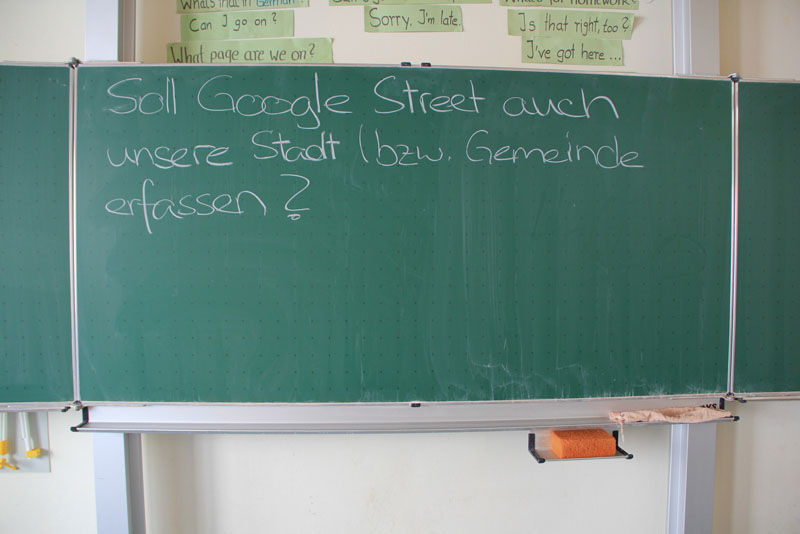 What's that in German?
Can I go on?
What page are we on?
Sorry, I'm late.
Is that right, too?
I've got here ...
Soll Google Street auch
unsere Stadt (bzw. Gemeinde
erfassen?